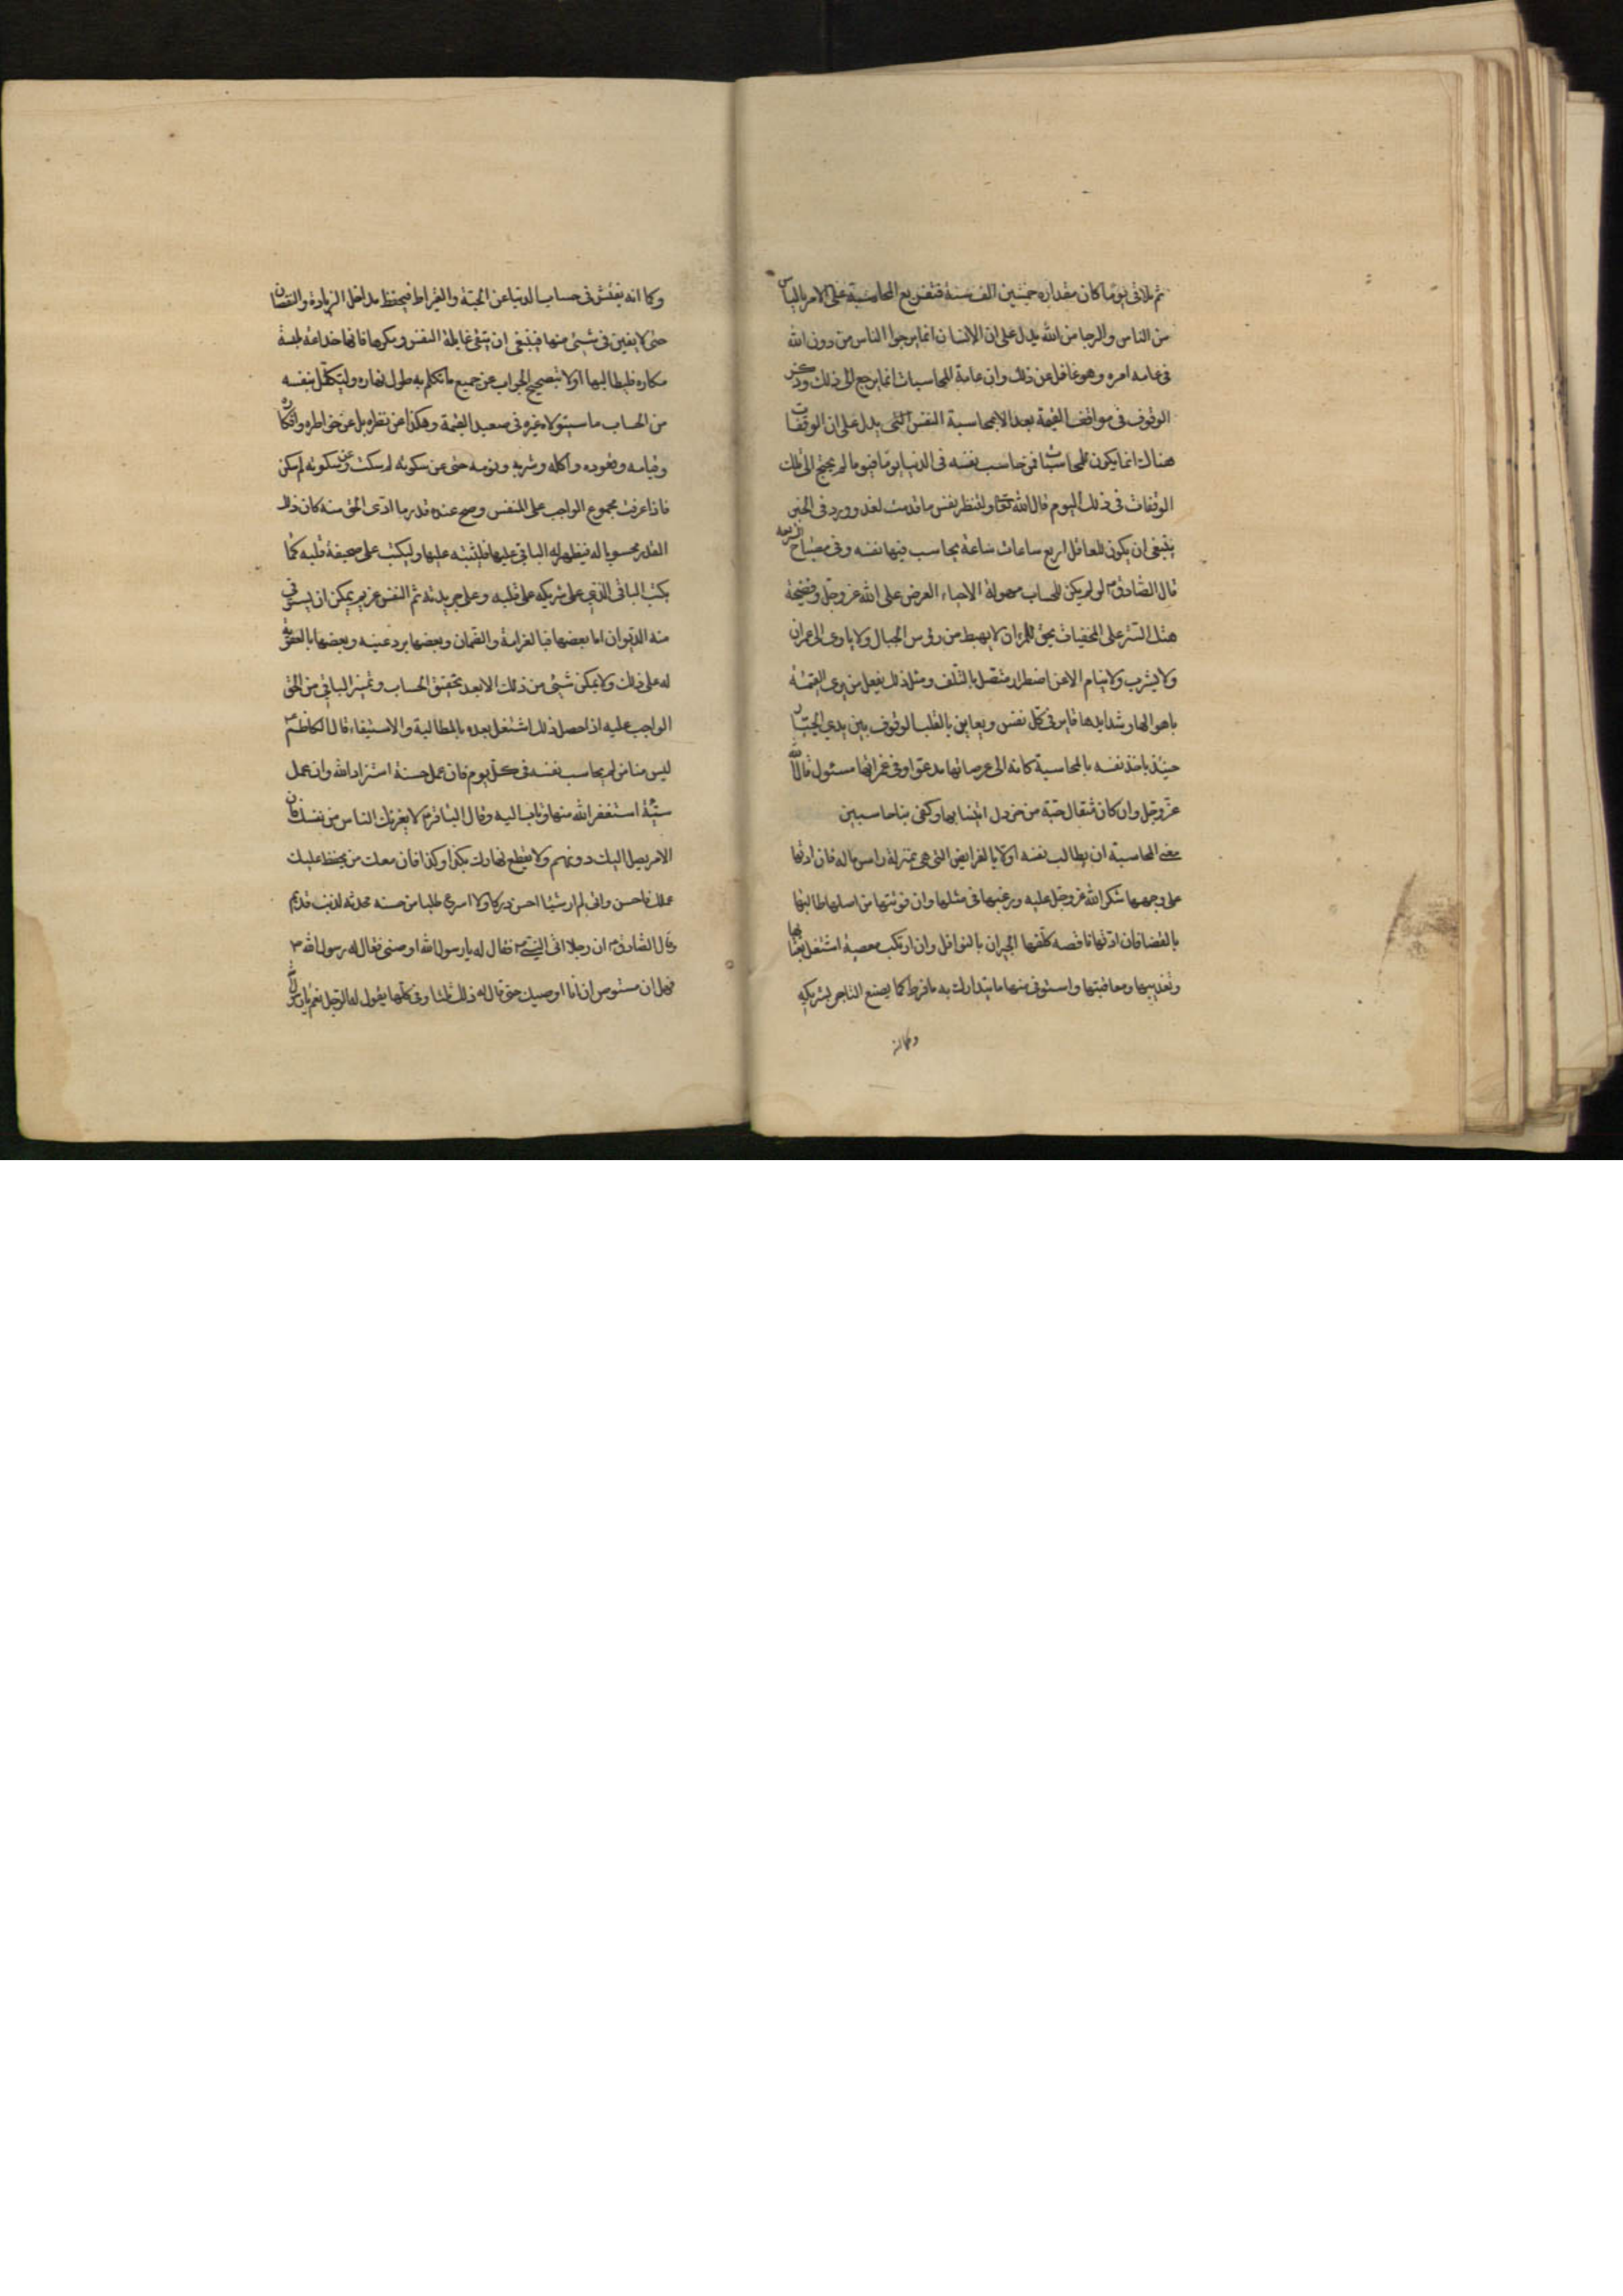 ثم تلا فى يوم كان مقداره خمسين الف سنة فتفريع المحاسبة على الامر بالياس
من الناس والرجا من الله يدل على ان الانسان انما يرجوا الناس من دون الله
فى عامه امره وهو غافل عن ذلك وان عامة المحاسبات انما يرجع الى ذلك وذكر
الوقوف فى مواقف القيمة بعد الامر بمحاسبة النفس يدل على ان الوقفات
هناك انما يكون للمحاسبات فمن حاسب نفسه فى الدنيا يوما فيوما لم يحتج الى تلك
الوقفات فى ذلك اليوم قال الله تعالى ولتنظر نفس ما قدمت لغد وورد فى الخبر
ينبغى ان يكون للعاقل اربع ساعات ساعة يحاسب فيها نفسه وفى مصباح الشريعه
قال الصادق ع لو لم يكن للحساب مهولة الا حياء العرض على الله عز وجل وفضيحة
هتك الستر على المخفيات يحق للمرء ان لا يهبط من رؤس الجبال ولا ياوى الى عمران
ولا يشرب ولا ينام الا عن اضطرار متصل بالتلف ومثل ذلك يفعل من يرى القيمة
باهوالها وشدايدها قايم فى كل نفس ويعاين بالقلب الوقوف بين يدى الجبار
حينئذ ياخذ نفسه بالمحاسبة كانه الى عرصاتها مدعو وفى غمراتها مسئول قال الله
عز وجل وان كان مثقال حبة من خردل اتينا بها وكفى بنا حاسبين
معنى المحاسبة ان يطالب نفسه اولا بالفرايض التى هى بمنزلة راس ماله فان ادتها
على وجهها شكر الله عز وجل عليه ورغبها فى مثلها وان فوتتها من اصلها طالبها
بالقضا فان ادتها ناقصه كلفها الجبران بالنوافل وان ارتكب معصية اشتغل بعتابها
وتعذيبها ومعاقبتها واستوفى منها ما يتدارك به ما فرط كما يصنع التاجر لشريكه
وكما انه
وكما انه يفتش فى حساب الدنيا عن الحبة والقيراط فيحفظ مداخل الزيادة والنقصان
حتى لا يغبن فى شيئ منها فينبغى ان يتقى غايلة النفس ومكرها فانها خداعة ملبسة
مكاره فليطالبها اولا بتصحيح الجواب عن جميع ما تكلم به طول نهاره وليتكفل بنفسه
من الحساب ما سيتولاه غيره فى صعيد القيمة وهكذا عن نظره بل عن خواطره وافكاره
وقيامه وقعوده واكله وشربه ونومه حتى عن سكوته لم سكت وعن سكونه لم سكن
فاذا عرفت مجموع الواجب على النفس وصح عنده قدر ما ادى الحق منه كان ذلك
القدر محسوبا له فيظهر له الباقى عليها فليثبته عليها وليكتب على صحيفة قلبه كما
يكتب الباقى الذى على شريكه على قلبه وعلى جريدته ثم النفس غريم يمكن ان يستوفى
منه الديوان اما بعضها فبالغرامة والضمان وبعضها برد عينه وبعضها بالعقوبة
له على ذلك ولا يمكن شيئ من ذلك الا بعد تحقيق الحساب وتميز الباقى من الحق
الواجب عليه اذا حصل ذلك اشتغل بعده بالمطالبة والاستيفاء قال الكاظم ع
ليس منا من لم يحاسب نفسه فى كل يوم فان عمل حسنة استزاد الله وان عمل
سيئة استغفر الله منها وتاب اليه وقال الباقر ع لا يغرنك الناس من نفسك فان
الامر يصل اليك دونهم ولا تقطع نهارك بكذا وكذا فان معك من يحفظ عليك
عملك فاحسن فانى لم ار شيئا احسن دركا ولا اسرع طلبا من حسنه محدثه لذنب قديم
وقال الصادق ع ان رجلا اتى النبى ص فقال له يا رسول الله اوصنى فقال له رسول الله ص
فهل ان مستوص ان انا اوصيك حتى قال له ذلك ثلثا وفى كلها يقول له الرجل نعم يا رسول الله